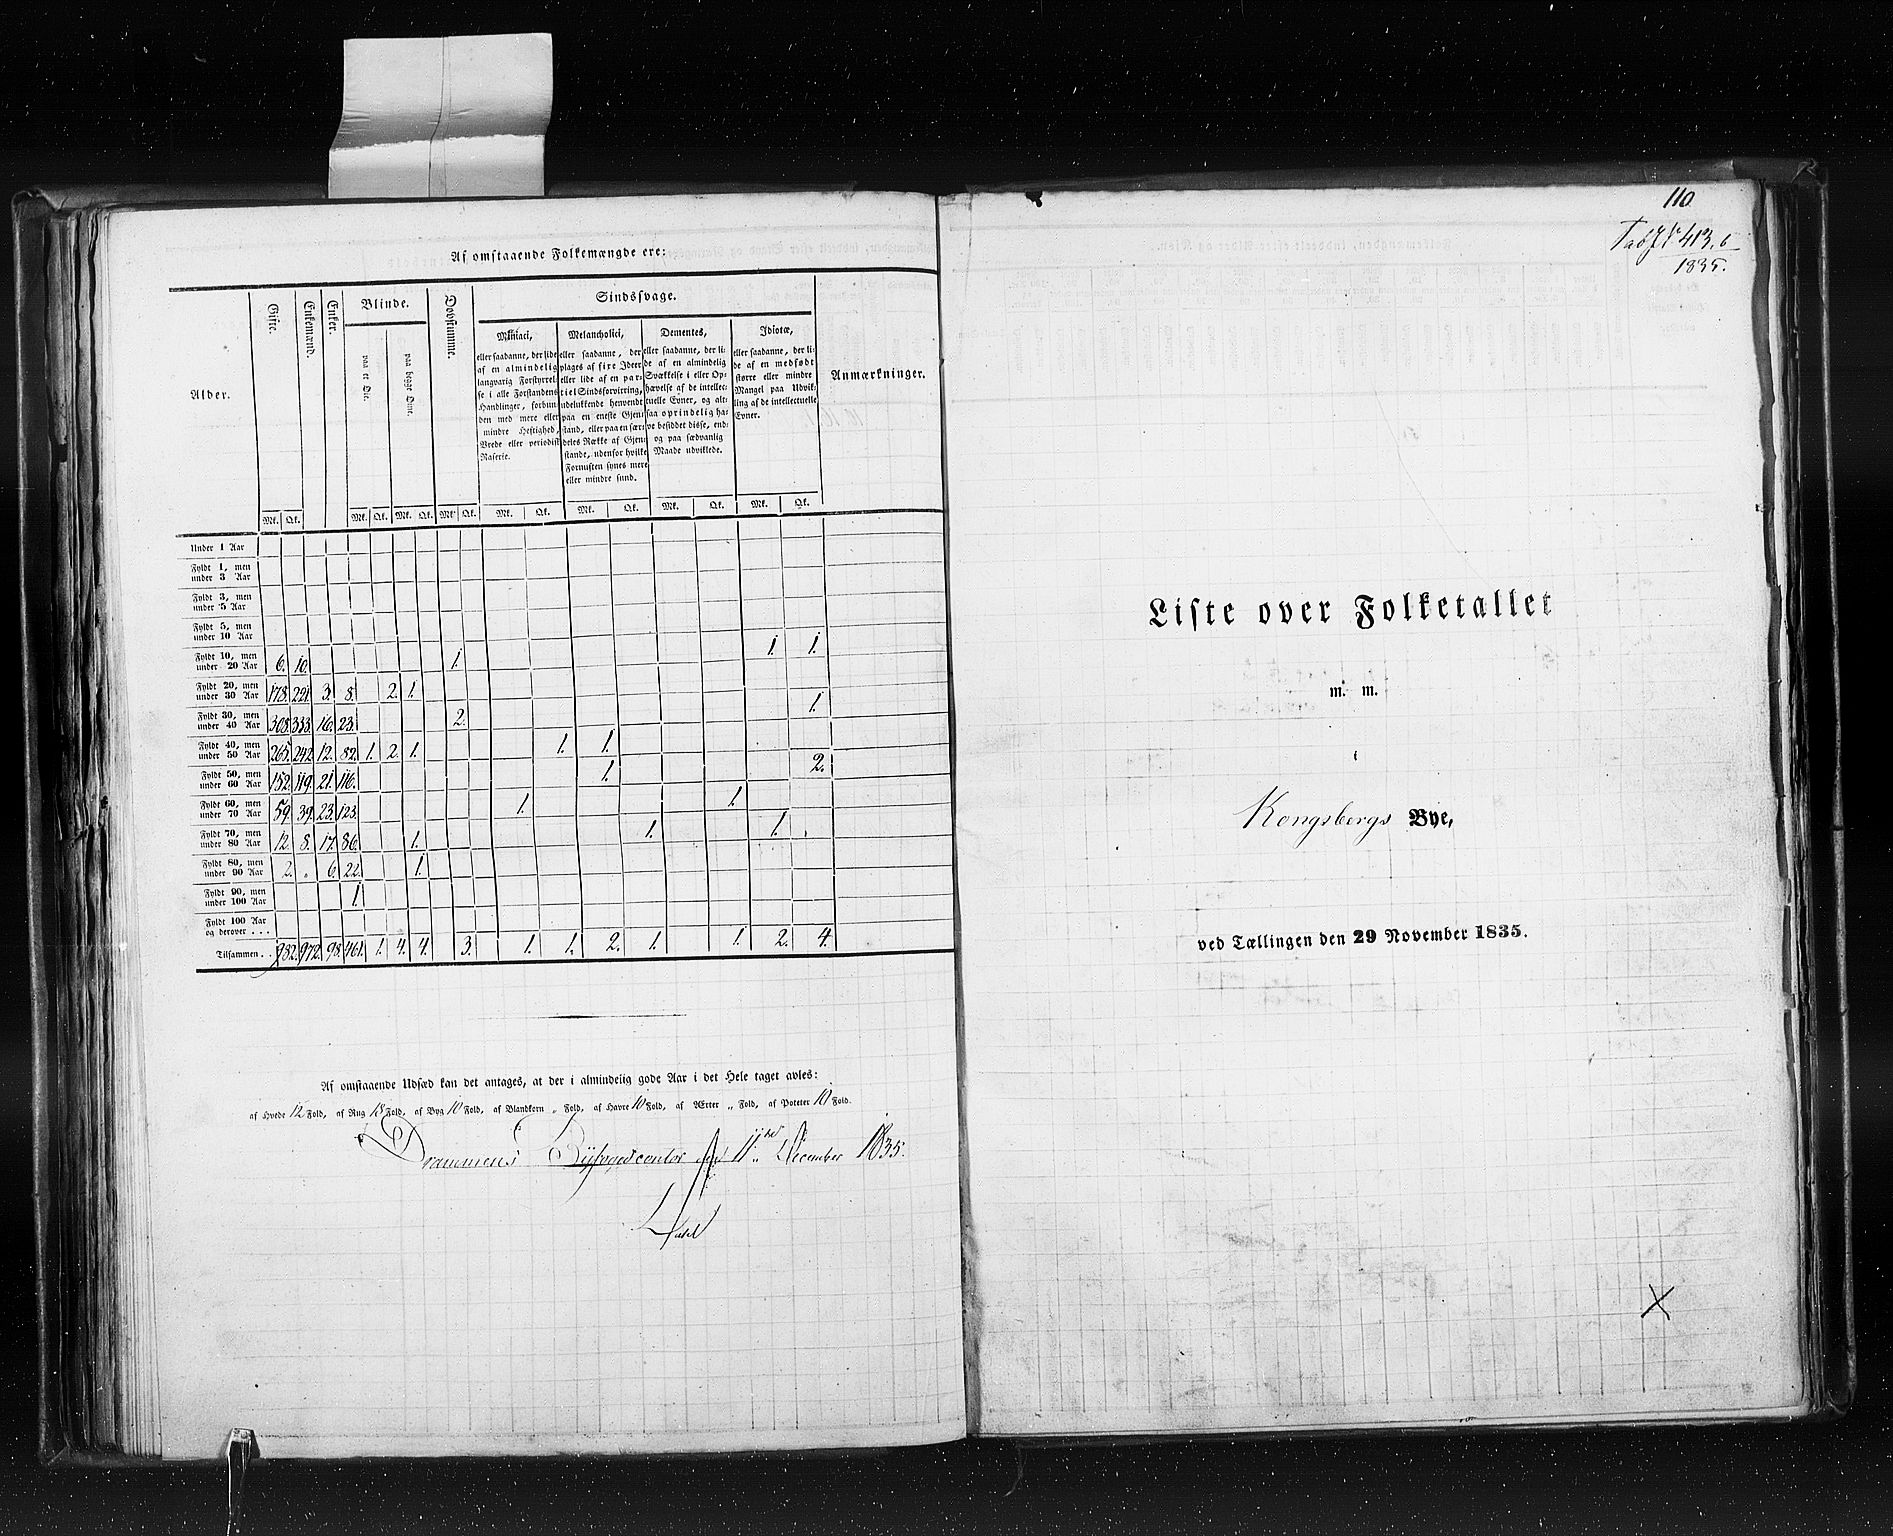 Af omstaaende Folkemængde ere:
Alder. Gifte. Enkemænd. Enker. Blinde. Døvstumme. Sindssvage. Anmærkninger.
paa et Øie. paa begge Øine.
Maniaci,
eller saadanne, der lide
af en almindelig
langvarig Forstyrrel-
se i alle Forstandens
Handlinger, forbun-
den med mere eller
mindre Heftighed,
Vrede eller periodisk
Raserie.
Melancholici,
eller saadanne, der
plages af fixe Ideer
eller lide af en par-
tiel Sindsforvirring,
udelukkende henvendt
paa en eneste Gjen-
stand, eller paa en sær-
deles Række af Gjen-
stande, udenfor hvilke
Fornuften synes mere
eller mindre sund.
Dementes,
eller saadanne, der li-
de af en almindelig
Svækkelse i eller Op-
hævelse af de intellec-
tuelle Evner, og alt-
saa oprindelig ha-
ve besiddet disse, end-
og paa sædvanlig
Maade udviklede.
Idiotæ,
eller saadanne, der li-
de af en medfødt
større eller mindre
Mangel paa Udvik-
ling af de intellectuelle
Evner.
Mk. Qk. Mk. Qk. Mk. Qk. Mk. Qk. Mk. Qk. Mk. Qk. Mk. Qk. Mk. Qk.
Under 1 Aar
Fyldt 1, men
under 3 Aar
Fyldt 3, men
under 5 Aar
Fyldt 5, men
under 10 Aar
Fyldt 10, men
under 20 Aar 6. 10. 1. 1. 1.
Fyldt 20, men
under 30 Aar 178. 221. 3. 8. 2. 1.
Fyldt 30, men
under 40 Aar 308. 333. 16. 23. 2. 1.
Fyldt 40, men
under 50 Aar 265. 242. 12. 82. 1. 2. 1. 1. 1.
Fyldt 50, men
under 60 Aar 152. 119. 21. 116. 1. 2.
Fyldt 60, men
under 70 Aar 59. 39. 23. 123. 1. 1.
Fyldt 70, men
under 80 Aar 12. 8. 17. 86. 1. 1. 1.
Fyldt 80, men
under 90 Aar 2. „ 6. 22. 1.
Fyldt 90, men
under 100 Aar 1.
Fyldt 100 Aar
og derover . . .
Tilsammen . . 982. 972. 98. 461. 1. 4. 4. 3. 1. 1. 2. 1. 1. 2. 4.
Af omstaaende Udsæd kan det antages, at der i almindelig gode Aar i det Hele taget avles:
af Hvede 12 Fold, af Rug 18 Fold, af Byg 10 Fold, af Blandkorn „ Fold, af Havre 10 Fold, af Ærter „ Fold, af Poteter 10 Fold.
Drammens Byfogedcontor 11te December 1835.
110
413. 6
1835.
Liste over Folketallet
m. m.
i
Kongsbergs Bye,
ved Tællingen den 29 November 1835.
X